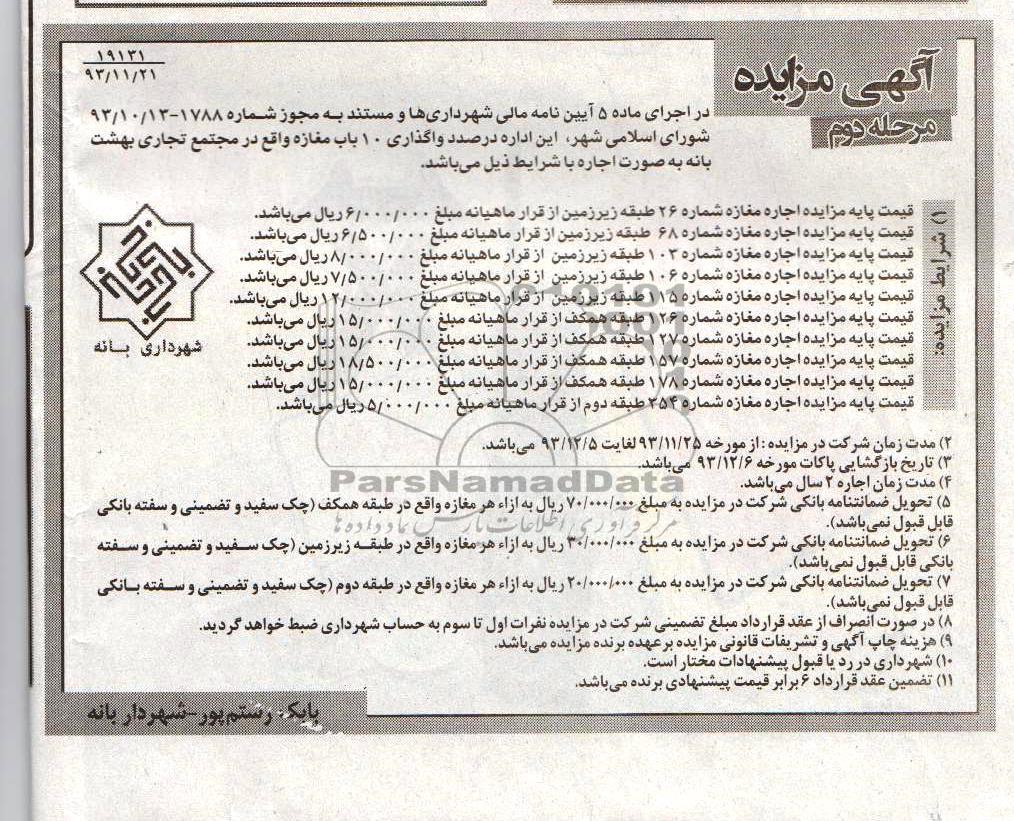 آگهی مزایده
مرحله دوم
۱۹۱۳۱
۹۳/۱۱/۲۱
در اجرای ماده ۵ آیین نامه مالی شهرداری‌ها و مستند به مجوز شماره ۱۷۸۸-۹۳/۱۰/۱۳
شورای اسلامی شهر، این اداره درصدد واگذاری ۱۰ باب مغازه واقع در مجتمع تجاری بهشت
بانه به صورت اجاره با شرایط ذیل می‌باشد.
۱) شرایط مزایده:
قیمت پایه مزایده اجاره مغازه شماره ۲۶ طبقه زیرزمین از قرار ماهیانه مبلغ ۶/۰۰۰/۰۰۰ ریال می‌باشد.
قیمت پایه مزایده اجاره مغازه شماره ۶۸ طبقه زیرزمین از قرار ماهیانه مبلغ ۶/۵۰۰/۰۰۰ ریال می‌باشد.
قیمت پایه مزایده اجاره مغازه شماره ۱۰۳ طبقه زیرزمین از قرار ماهیانه مبلغ ۸/۰۰۰/۰۰۰ ریال می‌باشد.
قیمت پایه مزایده اجاره مغازه شماره ۱۰۶ طبقه زیرزمین از قرار ماهیانه مبلغ ۷/۵۰۰/۰۰۰ ریال می‌باشد.
قیمت پایه مزایده اجاره مغازه شماره ۱۱۵ طبقه زیرزمین از قرار ماهیانه مبلغ ۱۲/۰۰۰/۰۰۰ ریال می‌باشد.
قیمت پایه مزایده اجاره مغازه شماره ۱۲۶ طبقه همکف از قرار ماهیانه مبلغ ۱۵/۰۰۰/۰۰۰ ریال می‌باشد.
قیمت پایه مزایده اجاره مغازه شماره ۱۲۷ طبقه همکف از قرار ماهیانه مبلغ ۱۵/۰۰۰/۰۰۰ ریال می‌باشد.
قیمت پایه مزایده اجاره مغازه شماره ۱۵۷ طبقه همکف از قرار ماهیانه مبلغ ۱۸/۵۰۰/۰۰۰ ریال می‌باشد.
قیمت پایه مزایده اجاره مغازه شماره ۱۷۸ طبقه همکف از قرار ماهیانه مبلغ ۱۵/۰۰۰/۰۰۰ ریال می‌باشد.
قیمت پایه مزایده اجاره مغازه شماره ۲۵۴ طبقه دوم از قرار ماهیانه مبلغ ۵/۰۰۰/۰۰۰ ریال می‌باشد.
شهرداری بانه
۲) مدت زمان شرکت در مزایده: از مورخه ۹۳/۱۱/۲۵ لغایت ۹۳/۱۲/۵ می‌باشد.
۳) تاریخ بازگشایی پاکات مورخه ۹۳/۱۲/۶ می‌باشد.
۴) مدت زمان اجاره ۲ سال می‌باشد.
ParsNamadData
مرکز فرآوری اطلاعات پارس نماد داده ها
۵) تحویل ضمانتنامه بانکی شرکت در مزایده به مبلغ ۷۰/۰۰۰/۰۰۰ ریال به ازاء هر مغازه واقع در طبقه همکف (چک سفید و تضمینی و سفته بانکی
قابل قبول نمی‌باشد).
۶) تحویل ضمانتنامه بانکی شرکت در مزایده به مبلغ ۳۰/۰۰۰/۰۰۰ ریال به ازاء هر مغازه واقع در طبقه زیرزمین (چک سفید و تضمینی و سفته
بانکی قابل قبول نمی‌باشد).
۷) تحویل ضمانتنامه بانکی شرکت در مزایده به مبلغ ۲۰/۰۰۰/۰۰۰ ریال به ازاء هر مغازه واقع در طبقه دوم (چک سفید و تضمینی و سفته بانکی
قابل قبول نمی‌باشد).
۸) در صورت انصراف از عقد قرارداد مبلغ تضمینی شرکت در مزایده نفرات اول تا سوم به حساب شهرداری ضبط خواهد گردید.
۹) هزینه چاپ آگهی و تشریفات قانونی مزایده بر عهده برنده مزایده می‌باشد.
۱۰) شهرداری در رد یا قبول پیشنهادات مختار است.
۱۱) تضمین عقد قرارداد ۶ برابر قیمت پیشنهادی برنده می‌باشد.
بابک رستم‌پور-شهردار بانه